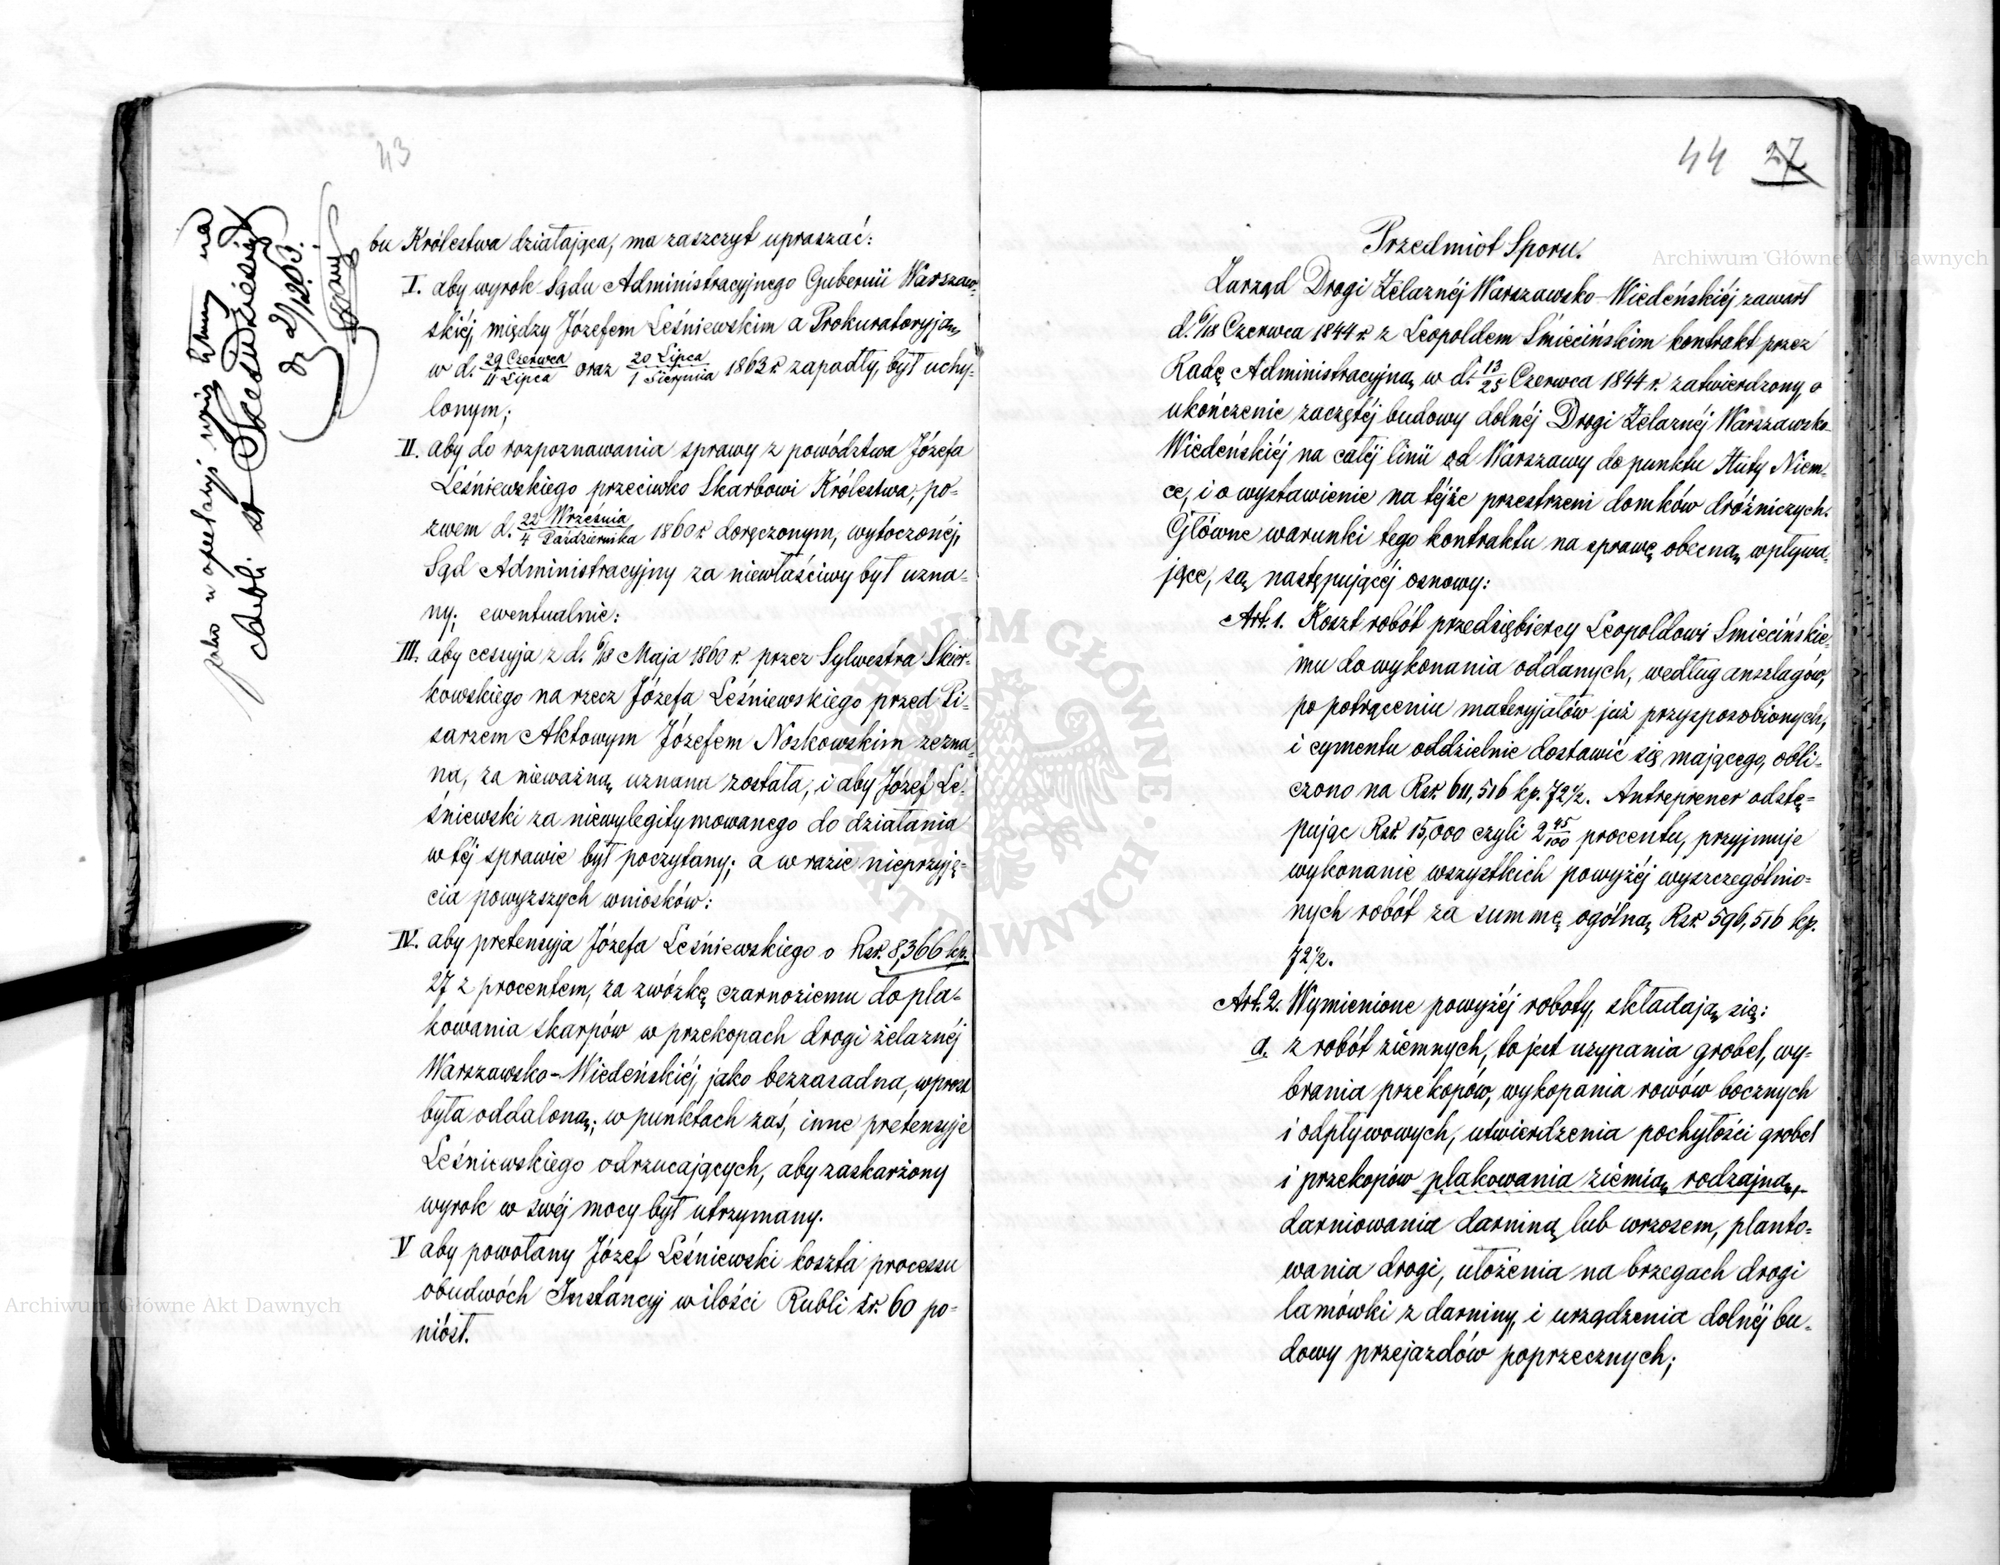 43
bu Królestwa działająca, ma zaszczyt upraszać:
I. aby wyrok Sądu Administracyjnego Gubernii Warszaw-
skiéj, między Józefem Leśniewskim a Prokuratoryją,
w d. 29 Czerwca / 11 Lipca oraz 20 Lipca / 1 Sierpnia 1863 r. zapadły, był uchy-
lonym;
II. aby do rozpoznawania sprawy z powództwa Józefa
Leśniewskiego przeciwko Skarbowi Królestwa, po-
zwem d. 22 Września / 4 Października 1860 r. doręczonym, wytoczonéj,
Sąd Administracyjny za niewłaściwy był uzna-
ny; ewentualnie:
III. aby cessyja z d. 6/18 Maja 1860 r. przez Sylwestra Skier-
kowskiego na rzecz Józefa Leśniewskiego przed Pi-
sarzem Aktowym Józefem Noskowskim zezna-
na, za nieważną uznana została, i aby Józef Le-
śniewski za niewylegitymowanego do działania
w téj sprawie był poczytany; a w razie nieprzyję-
cia powyższych wniosków:
IV. aby pretensyja Józefa Leśniewskiego o Rsr. 8,366 kp.
27 z procentem, za zwózkę czarnoziemu do pla-
kowania skarpów w przekopach drogi żelaznéj
Warszawsko-Wiedeńskiéj, jako bezzasadna, wprost
była oddaloną; w punktach zaś, inne pretensyje
Leśniewskiego odrzucających, aby zaskarżony
wyrok w swéj mocy był utrzymany.
V aby powołany Józef Leśniewski koszta processu
obudwóch Instancyj w ilości Rubli sr. 60 po-
niósł.
44 27
Przedmiot Sporu.
Zarząd Drogi Żelaznéj Warszawsko-Wiedeńskiéj zawarł
d. 6/18 Czerwca 1844 r. z Leopoldem Śmiecińskim kontrakt przez
Radę Administracyjną w d. 13/25 Czerwca 1844 r. zatwierdzony, o
ukończenie zaczętéj budowy dolnéj Drogi Żelaznéj Warszawsko-
Wiedeńskiéj na całéj linii od Warszawy do punktu Huty Niem-
ce, i o wystawienie na téjże przestrzeni domków dróżniczych.
Główne warunki tego kontraktu na sprawę obecną wpływa-
jące, są następującéj osnowy:
Art. 1. Koszt robót przedsiębiercy Leopoldowi Smiecińskie-
mu do wykonania oddanych, według anszlagów,
po potrąceniu materyjałów już przysposobionych,
i cymentu oddzielnie dostawić się mającego, obli-
czono na Rsr. 611,516 kp. 72½. Antreprener odstę-
pując Rsr. 15,000 czyli 2 45/100 procentu, przyjmuje
wykonanie wszystkich powyżéj wyszczególnio-
nych robót za summę ogólną Rsr. 596,516 kp.
72½.
Art. 2. Wymienione powyżéj roboty, składają się:
a. z robót ziemnych, to jest usypania grobel, wy-
brania przekopów, wykopania rowów bocznych
i odpływowych, utwierdzenia pochyłości grobel
i przekopów plakowania ziemią rodzajną,
darniowania darniną lub wrzosem, planto-
wania drogi, ułożenia na brzegach drogi
lamówki z darniny, i urządzenia dolnéj bu-
dowy przejazdów poprzecznych;
Archiwum Główne Akt Dawnych
Archiwum Główne Akt Dawnych
ARCHIWUM GŁÓWNE AKT DAWNYCH